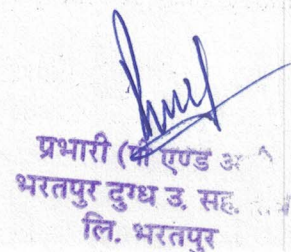 प्रभारी (पी एण्ड
भरतपुर दुग्ध उ. सह.
लि. भरतपुर